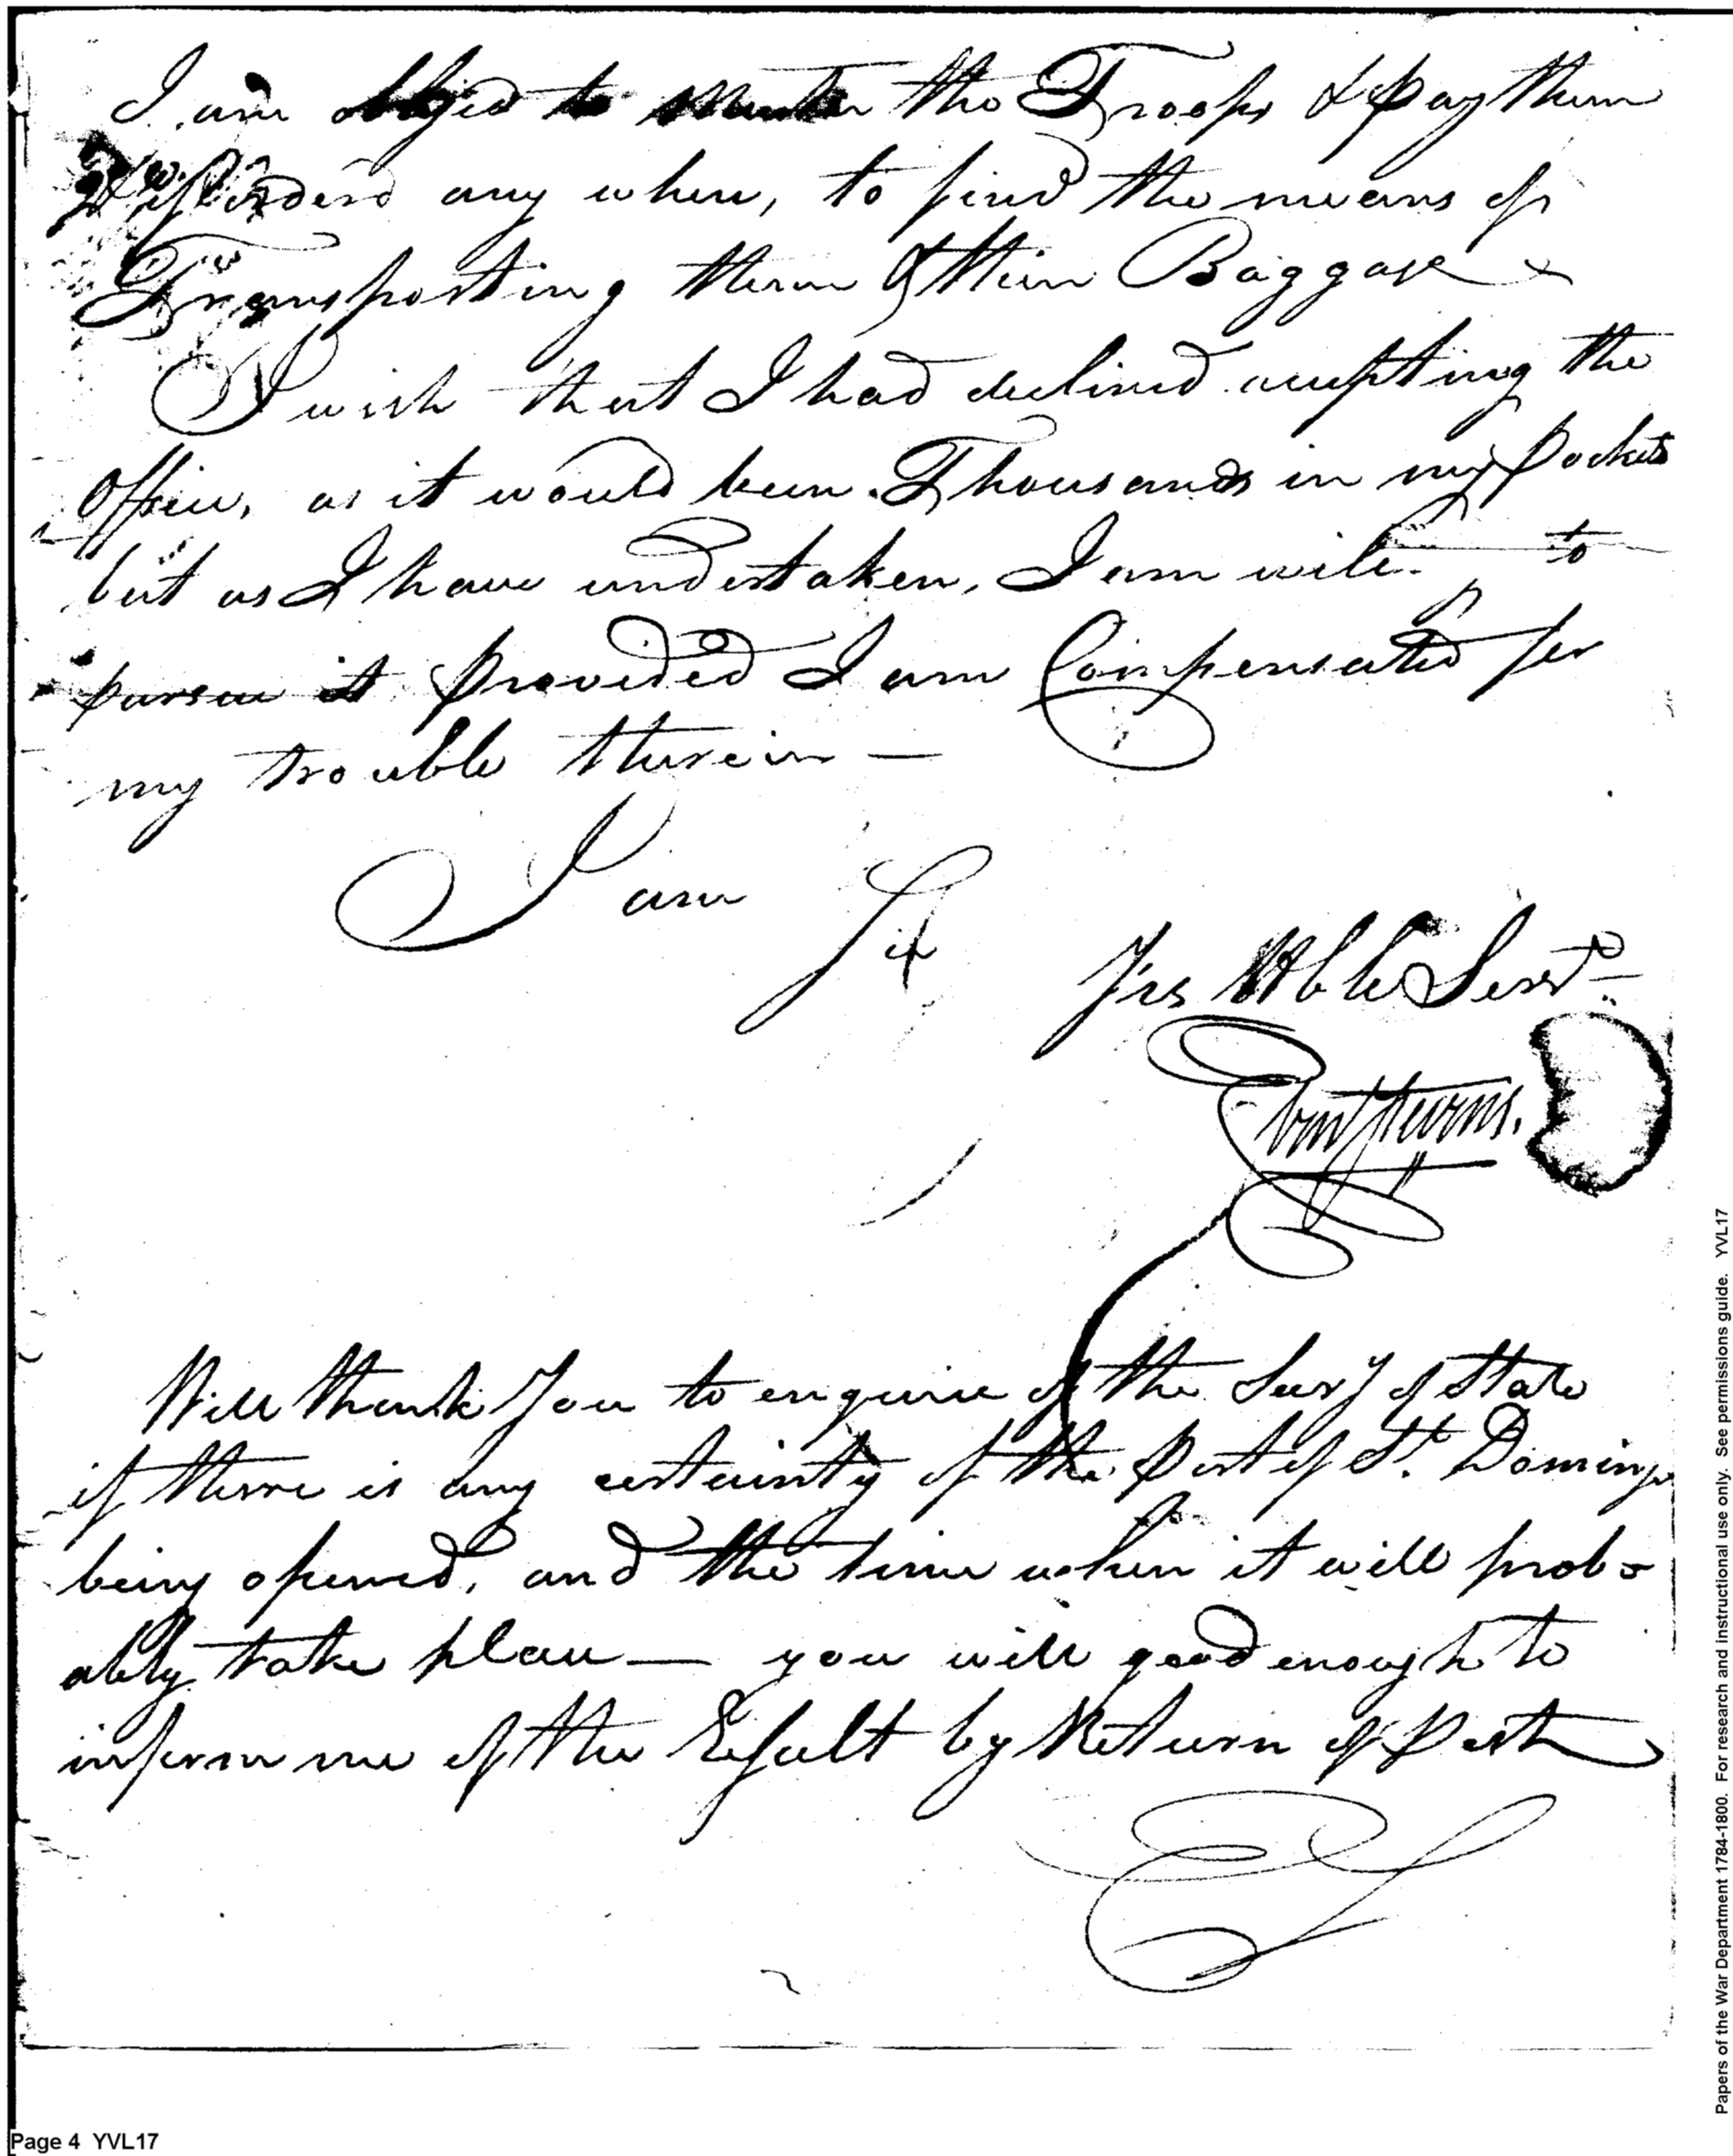 I am obliged to Muster the Troops & Pay them
& if orderd any where, to find the means of
Transporting them & their Baggage
I wish that I had declined accepting the
Office, as it would been Thousands in my Pockets
but as I have undertaken, I am to
pursue it Provided I am Compensated for
my trouble therein —
I am Sir
Yrs Hble Servt
Eben Stevens.
Will thank You to enquire of the Secry of State
if there is any certainty of the Port of St. Domingo
being opened, and the time when it will prob=
ably take place — you will good enough to
inform me of the Result by Return of Post
ES
Page 4 YVL17
Papers of the War Department 1784-1800. For research and instructional use only. See permissions guide. YVL17